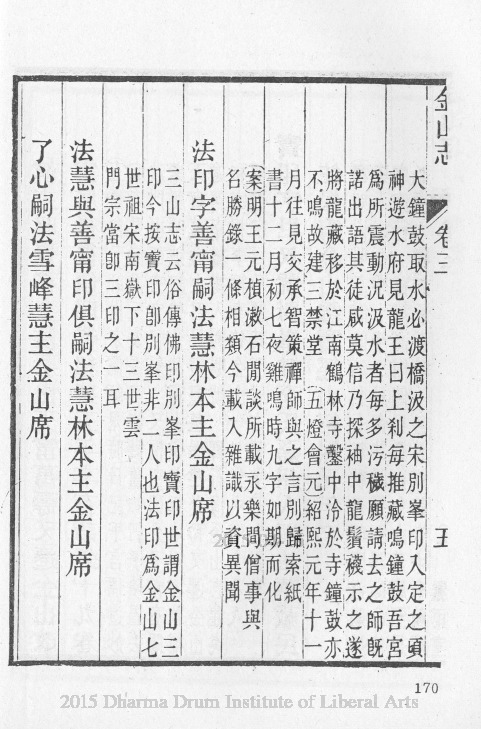 金山志
卷三
五
大鐘鼓取水必渡橋汲之宋別峯印入定之頃
神遊水府見龍王曰上刹每推藏鳴鐘鼓吾宮
爲所震動況汲水者每多污穢願請去之師旣
諾出語其徒咸莫信乃探神中龍鬚襪示之遂
將龍藏移於江南鶴林寺鑿中泠於寺鐘鼓亦
不鳴故建三禁堂（五燈會元）紹熙元年十一
月往見交承智策禪師與之言別歸索紙
書十二月初七夜雞鳴時九字如期而化
（案）明王元楨漱石閒談所載永樂間僧事與
名勝錄一條相類今載入雜識以資異聞
法印字善甯嗣法慧林本主金山席
三山志云俗傳佛印別峯印寶印世謂金山三
印今按寶印卽別峯非二人也法印爲金山七
世祖宋南嶽下十三世雲
門宗當卽三印之一耳
法慧與善甯印俱嗣法慧林本主金山席
了心嗣法雪峰慧主金山席
170
2015 Dharma Drum Institute of Liberal Arts